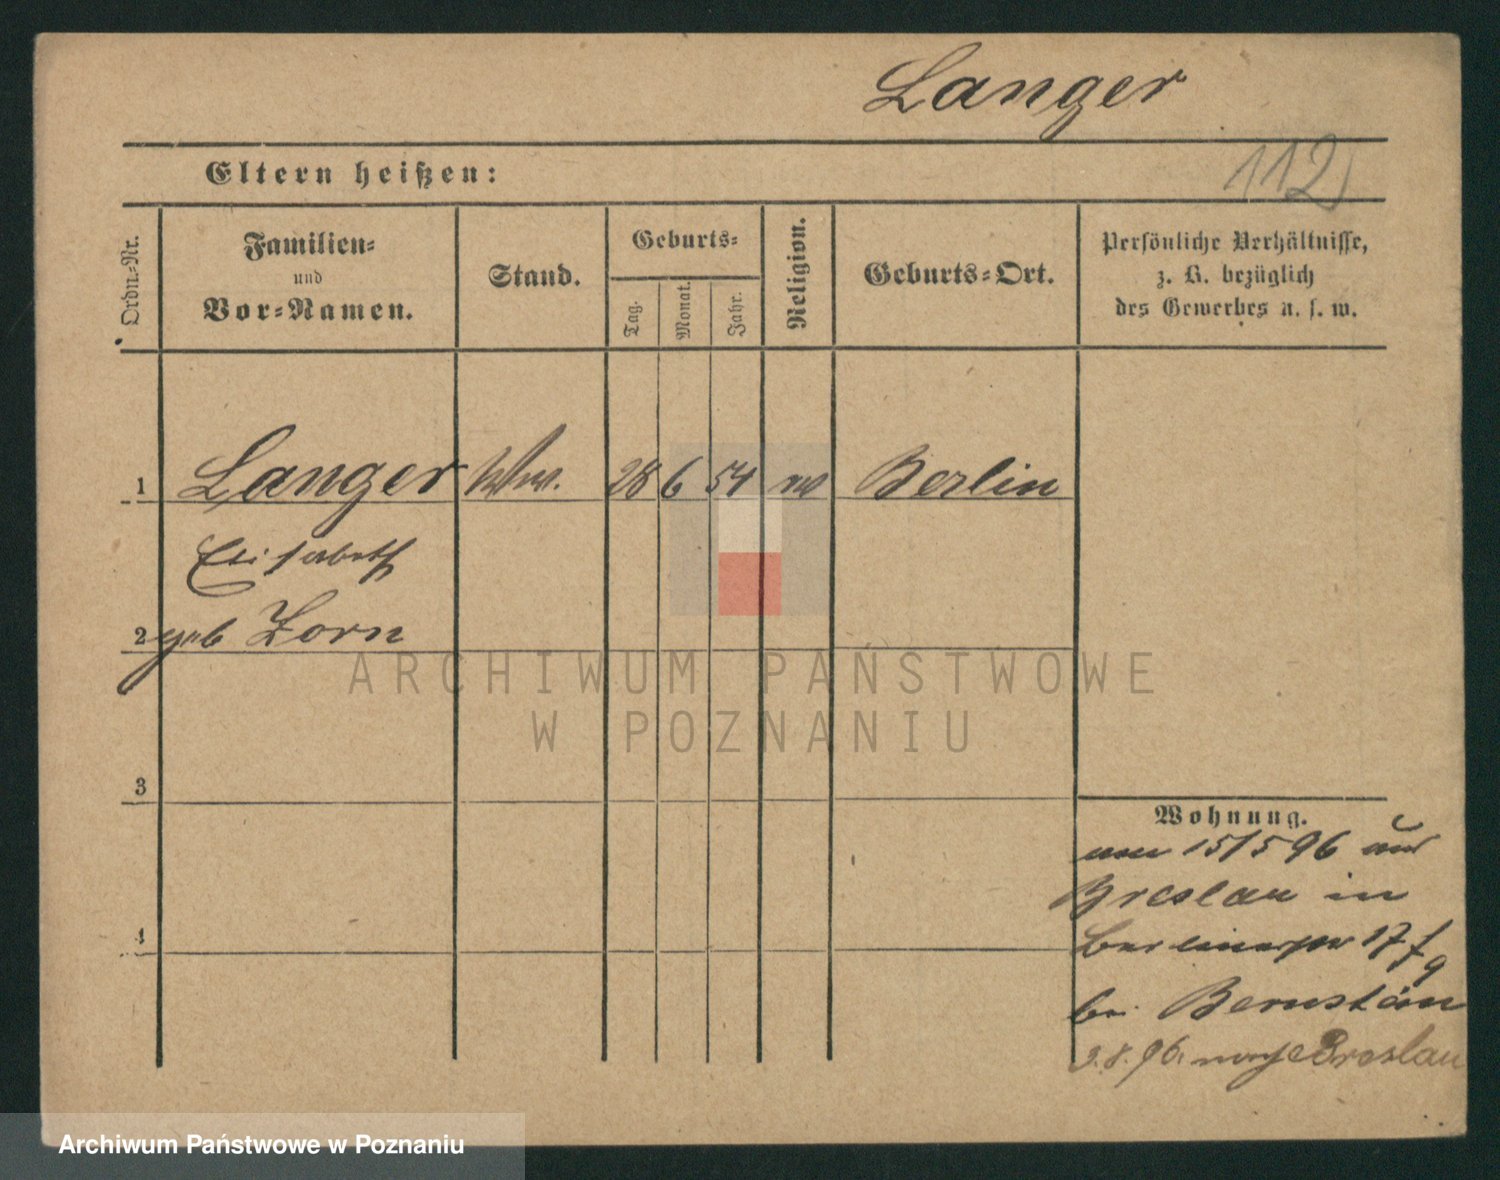 Langer
112
Eltern heißen:
Ordn.-Nr.
Familien-
und
Vor-Namen.
Stand.
Geburts-
Tag.
Monat.
Jahr.
Religion.
Geburts-Ort.
Persönliche Verhältnisse,
z. B. bezüglich
des Gewerbes u. s. w.
1 Langer Ww. 28 6 54 Berlin
Elisabeth
2 geb Zorn
3
4
Wohnung.
15/5 96 aus
Breslau in
17
bei Bernstein
3.8.96. nach Breslau
ARCHIWUM PAŃSTWOWE
W POZNANIU
Archiwum Państwowe w Poznaniu